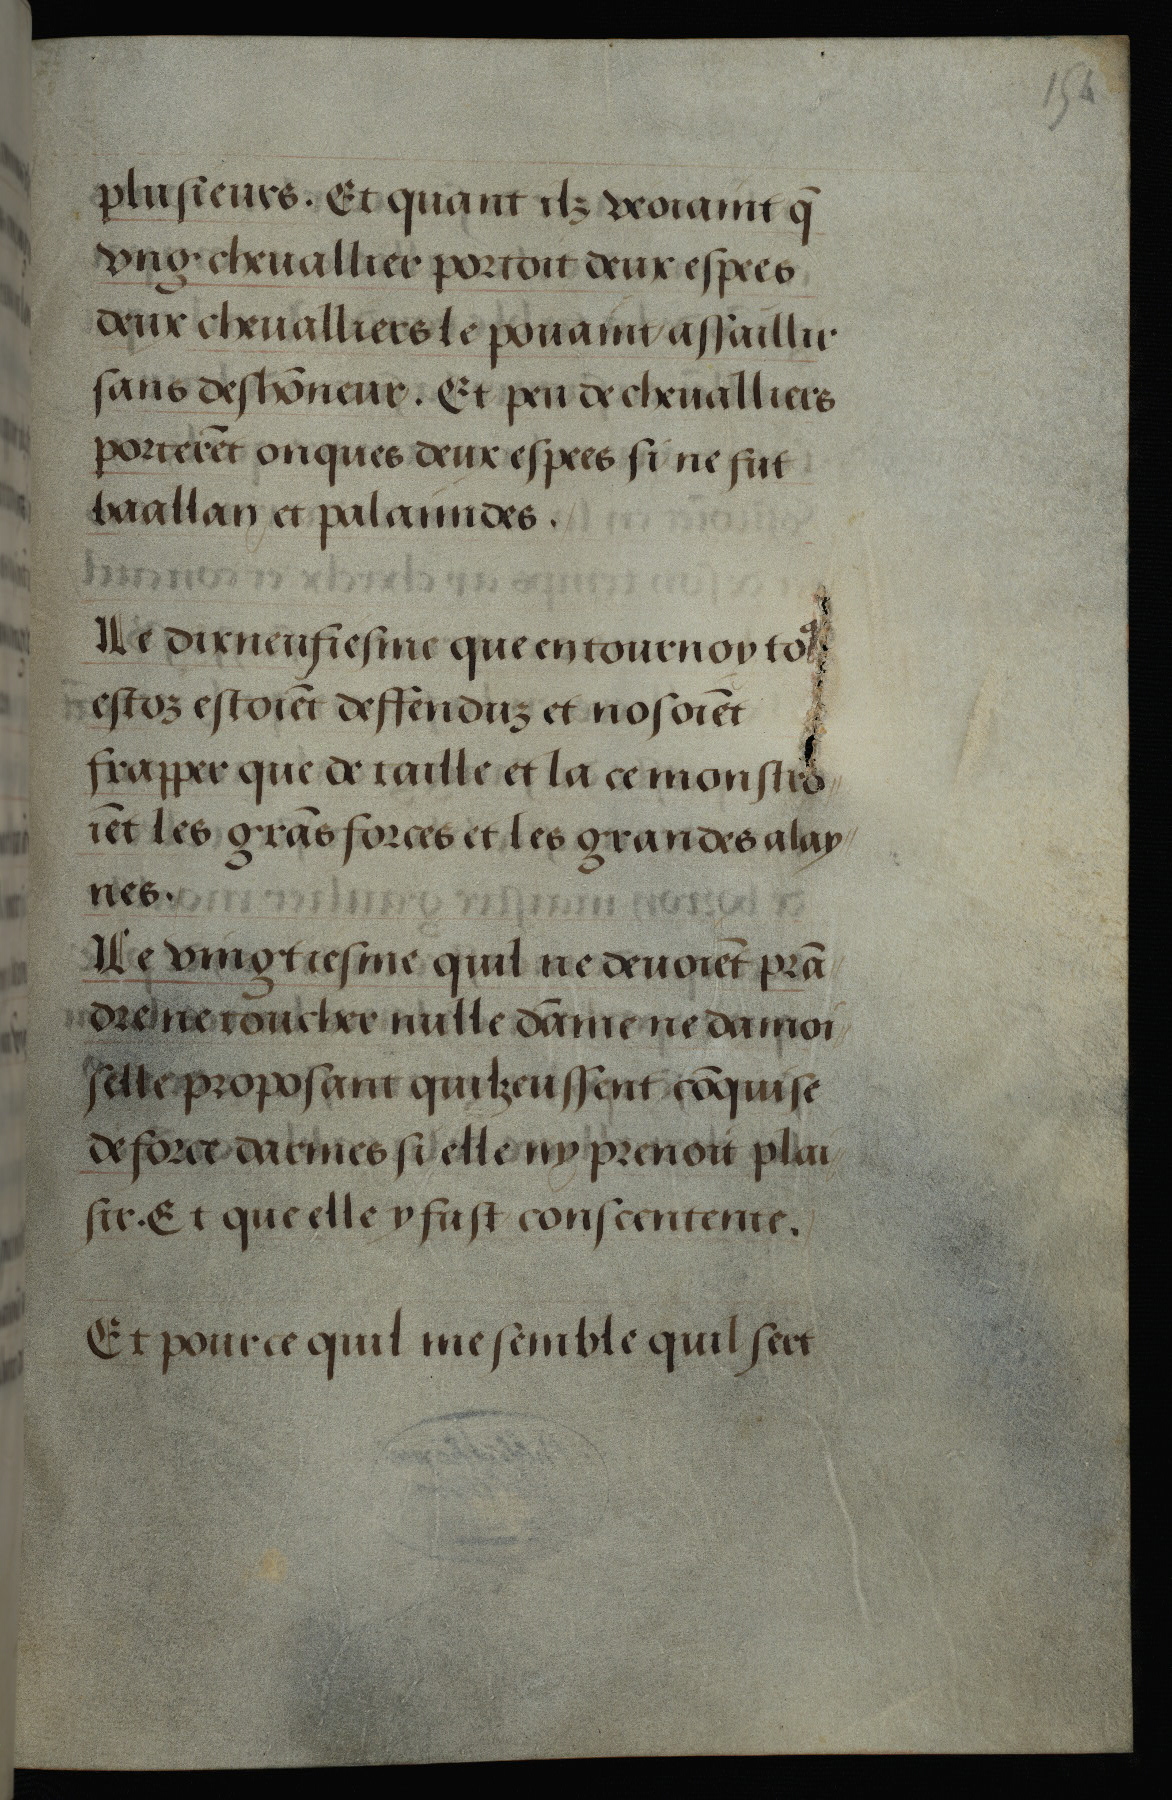 154
plusieurs. Et quant ilz veoiamt q̄
vng cheuallier portoit deux espees
deux cheualliers le pouamt assaillir
sans deshōneur. Et peu de cheualliers
porterēt onques deux espees si ne fut
baallan et palamides.
Le dixneufiesme que en tournoy to⁹
estoz estoiēt deffenduz et nosoiēt
frapper que de taille et la ce monstro
iēt les grās forces et les grandes alay
nes.
Le vingtiesme quil ne deuoiēt prā
dre ne toucher nulle dāme ne damoi
selle proposant quilz eussent cōquise
de force darmes si elle ny prenoit plai
sir. Et que elle y fust conscentente.
Et pour ce quil me semble quil sert